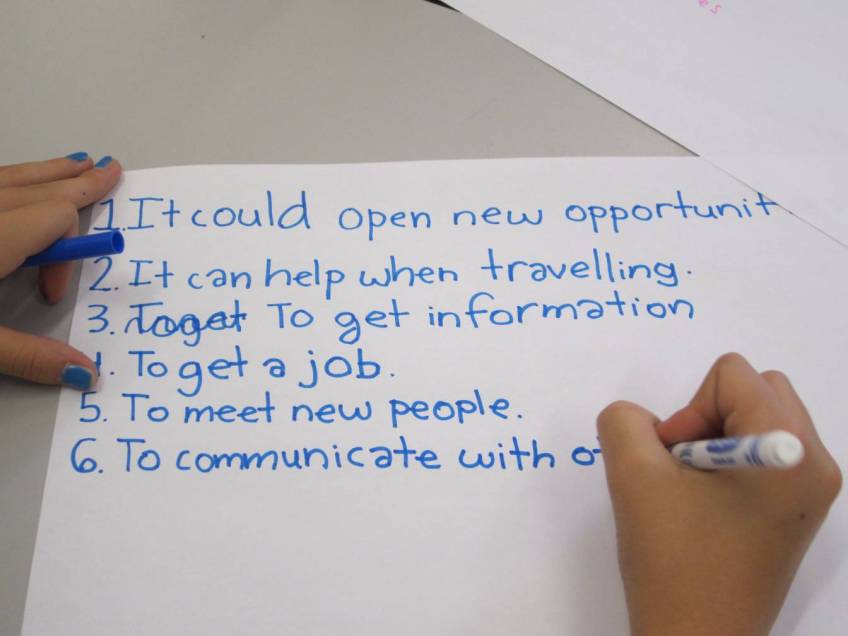 1. It could open new opportunit
2. It can help when travelling.
3. To get information
4. To get a job.
5. To meet new people.
6. To communicate with